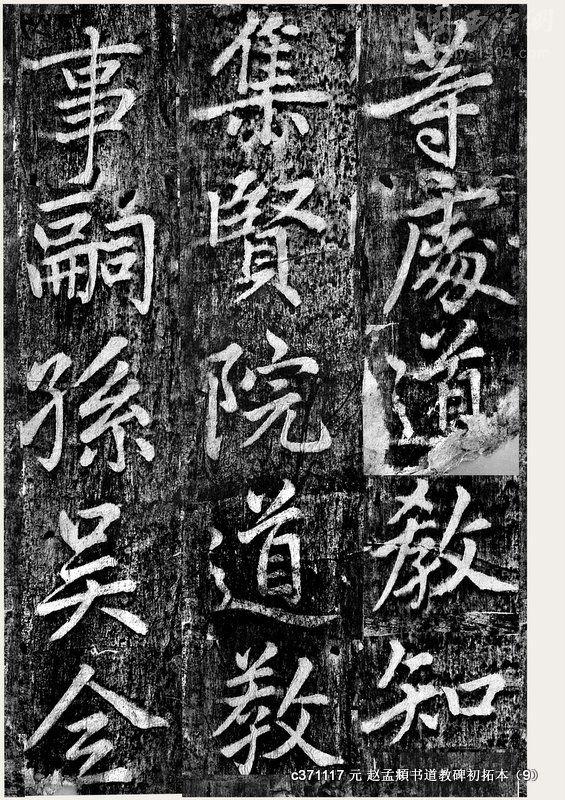 等處道教知
集賢院道教
事嗣孫吳全
c371117 元 赵孟頫书道教碑初拓本（9）